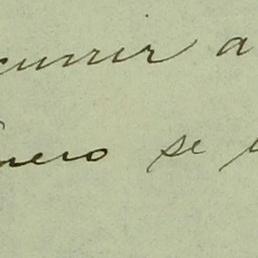 currir a
nero se